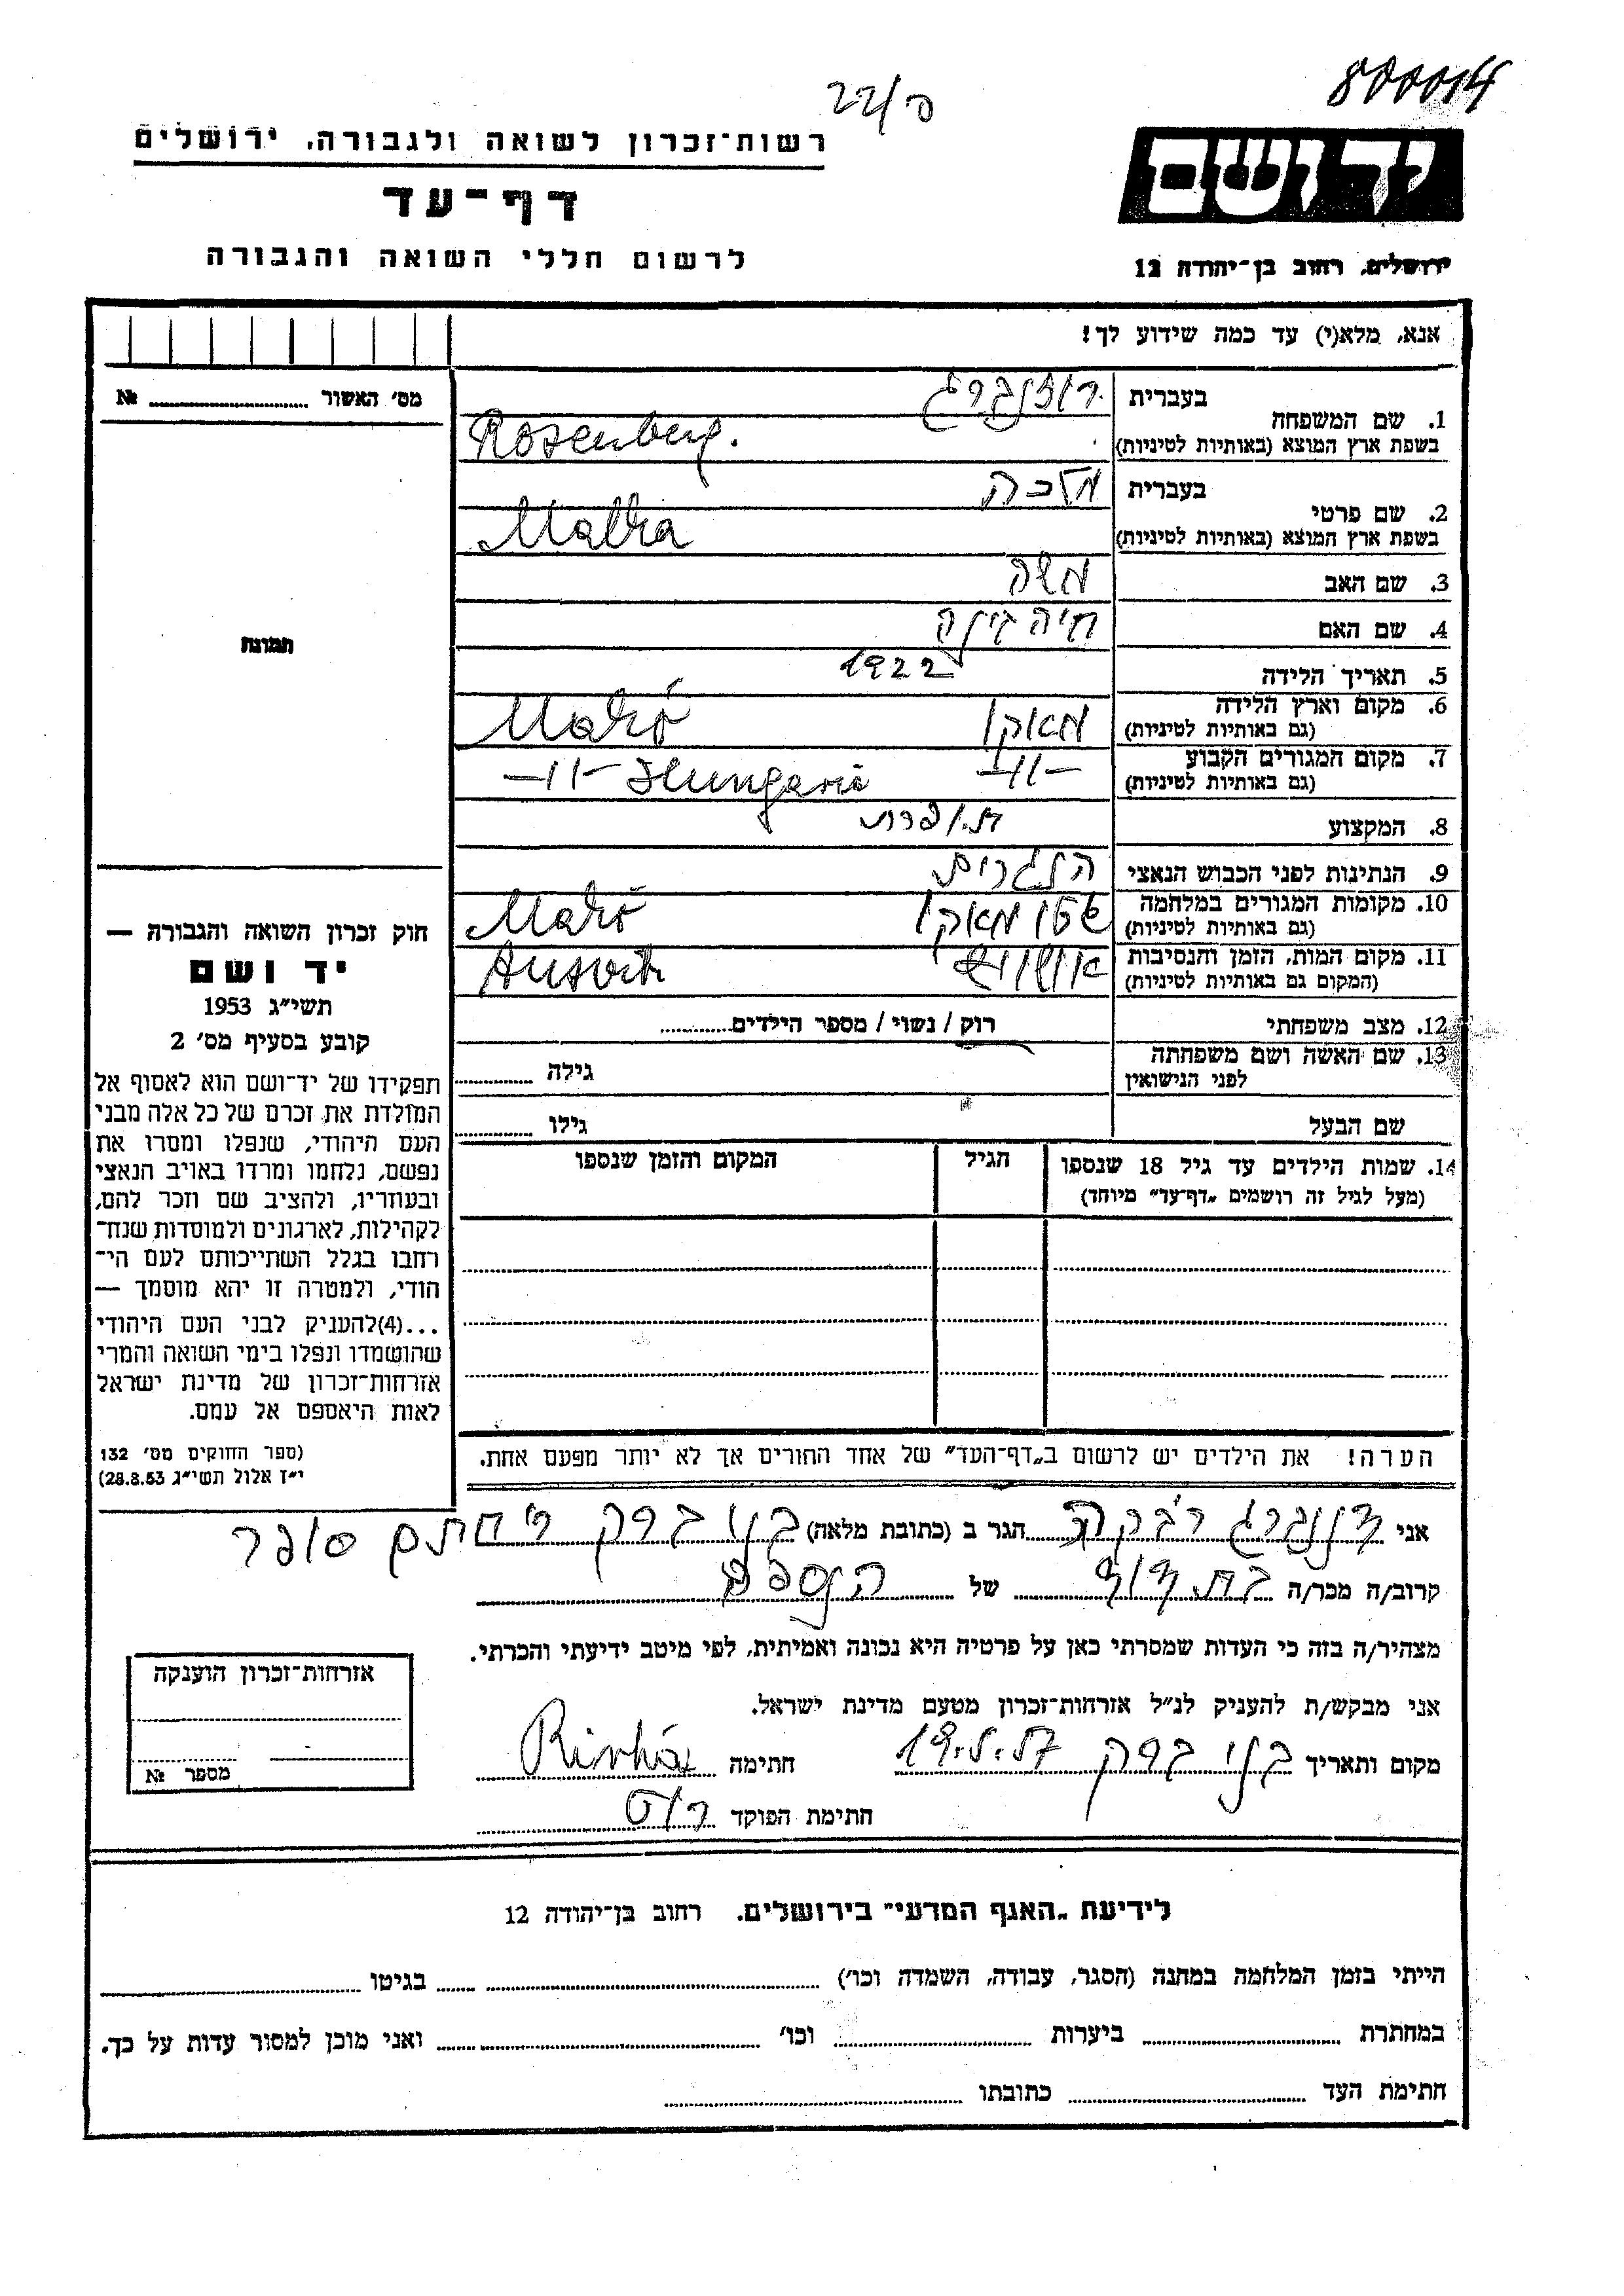 800014
22/ פ
רשות־זכרון לשואה ולגבורה, ירושלים
דף־עד
לרשום חללי השואה והגבורה
יד ושם
ירושלים, רחוב בן־יהודה 12
אנא, מלא(י) עד כמה שידוע לך!
מס׳ האשור № 
1. שם המשפחה
בעברית רוזנברג
בשפת ארץ המוצא (באותיות לטיניות) Rosenberg.
2. שם פרטי
בעברית מלכה
בשפת ארץ המוצא (באותיות לטיניות) Malka
3. שם האב משה
4. שם האם חיה
5. תאריך הלידה 1922
6. מקום וארץ הלידה מאקו Makó
(גם באותיות לטיניות)
7. מקום המגורים הקבוע -11- -11- Hungaria
(גם באותיות לטיניות)
8. המקצוע תופרת
9. הנתינות לפני הכבוש הנאצי הונגרית
10. מקומות המגורים במלחמה גטו מאקו Makó
(גם באותיות לטיניות)
11. מקום המות, הזמן והנסיבות אושוויץ Ausvitz
(המקום גם באותיות לטיניות)
12. מצב משפחתי רוק / נשוי / מספר הילדים
13. שם האשה ושם משפחתה
לפני הנישואין
גילה
שם הבעל
גילו
14. שמות הילדים עד גיל 18 שנספו
(מעל לגיל זה רושמים „דף־עד” מיוחד)
הגיל
המקום והזמן שנספו
תמונה
חוק זכרון השואה והגבורה —
יד ושם
תשי״ג 1953
קובע בסעיף מס׳ 2
תפקידו של יד־ושם הוא לאסוף אל
המולדת את זכרם של כל אלה מבני
העם היהודי, שנפלו ומסרו את
נפשם, נלחמו ומרדו באויב הנאצי
ובעוזריו, ולהציב שם וזכר להם,
לקהילות, לארגונים ולמוסדות שנח־
רחבו בגלל השתייכותם לעם הי־
הודי, ולמטרה זו יהא מוסמך —
...(4)להעניק לבני העם היהודי
שהושמדו ונפלו בימי השואה והמרי
אזרחות־זכרון של מדינת ישראל
לאות היאספם אל עמם.
(ספר החוקים מס׳ 132
י״ז אלול תשי״ג 28.8.53)
הערה! את הילדים יש לרשום ב„דף־העד” של אחד ההורים אך לא יותר מפעם אחת.
אני זינגרג רבקה הגר ב (כתובת מלאה) בני ברק רח חתם סופר
קרוב/ה מכר/ה בת דוד של הנספה
מצהיר/ה בזה כי העדות שמסרתי כאן על פרטיה היא נכונה ואמיתית, לפי מיטב ידיעתי והכרתי.
אני מבקש/ת להעניק לנ״ל אזרחות־זכרון מטעם מדינת ישראל.
מקום ותאריך בני ברק 19.5.57 חתימה
חתימת הפוקד רוט
אזרחות־זכרון הוענקה
מספר №
לידיעת „האגף המדעי” בירושלים, רחוב בן־יהודה 12
הייתי בזמן המלחמה במחנה (הסגר, עבודה, השמדה וכו׳) בגיטו
במחתרת ביערות וכו׳ ואני מוכן למסור עדות על כך.
חתימת העד כתובתו